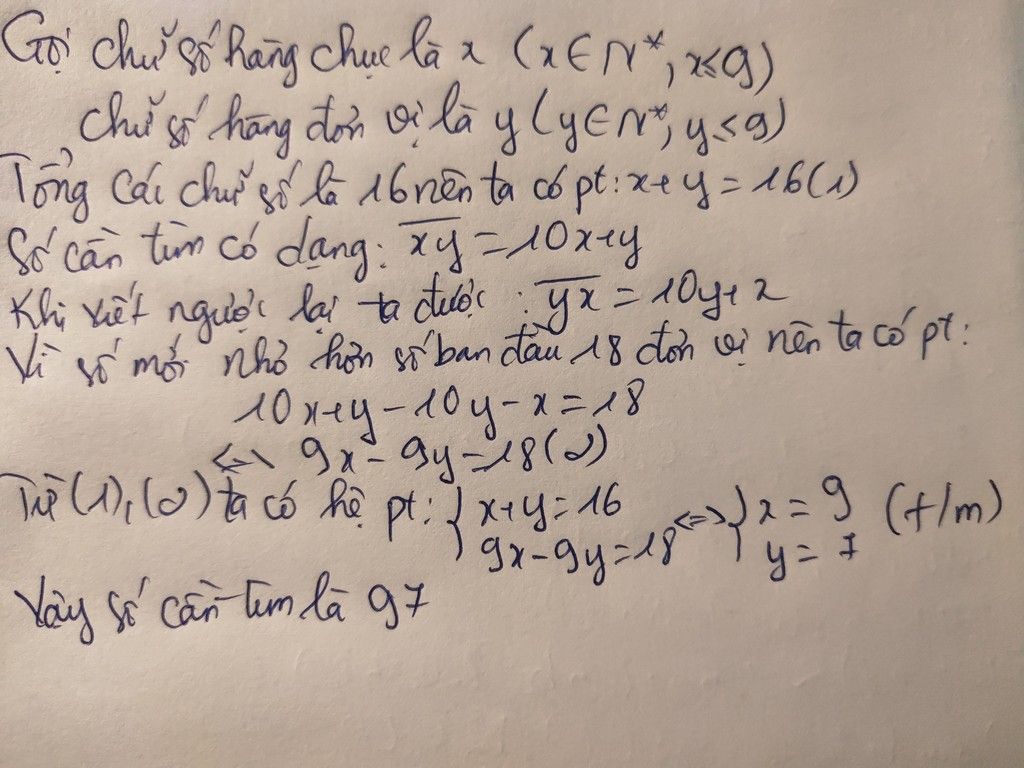 Gọi chữ số hàng chục là x (x ∈ N*, x ≤ 9)
chữ số hàng đơn vị là y (y ∈ N*, y ≤ 9)
Tổng các chữ số là 16 nên ta có pt: x + y = 16 (1)
Số cần tìm có dạng: x̅y̅ = 10x + y
Khi viết ngược lại ta được: y̅x̅ = 10y + x
Vì số mới nhỏ hơn số ban đầu 18 đơn vị nên ta có pt:
10x + y - 10y - x = 18
<=> 9x - 9y = 18 (2)
Từ (1), (2) ta có hệ pt: { x + y = 16 ; 9x - 9y = 18 <=> { x = 9 ; y = 7 (t/m)
Vậy số cần tìm là 97